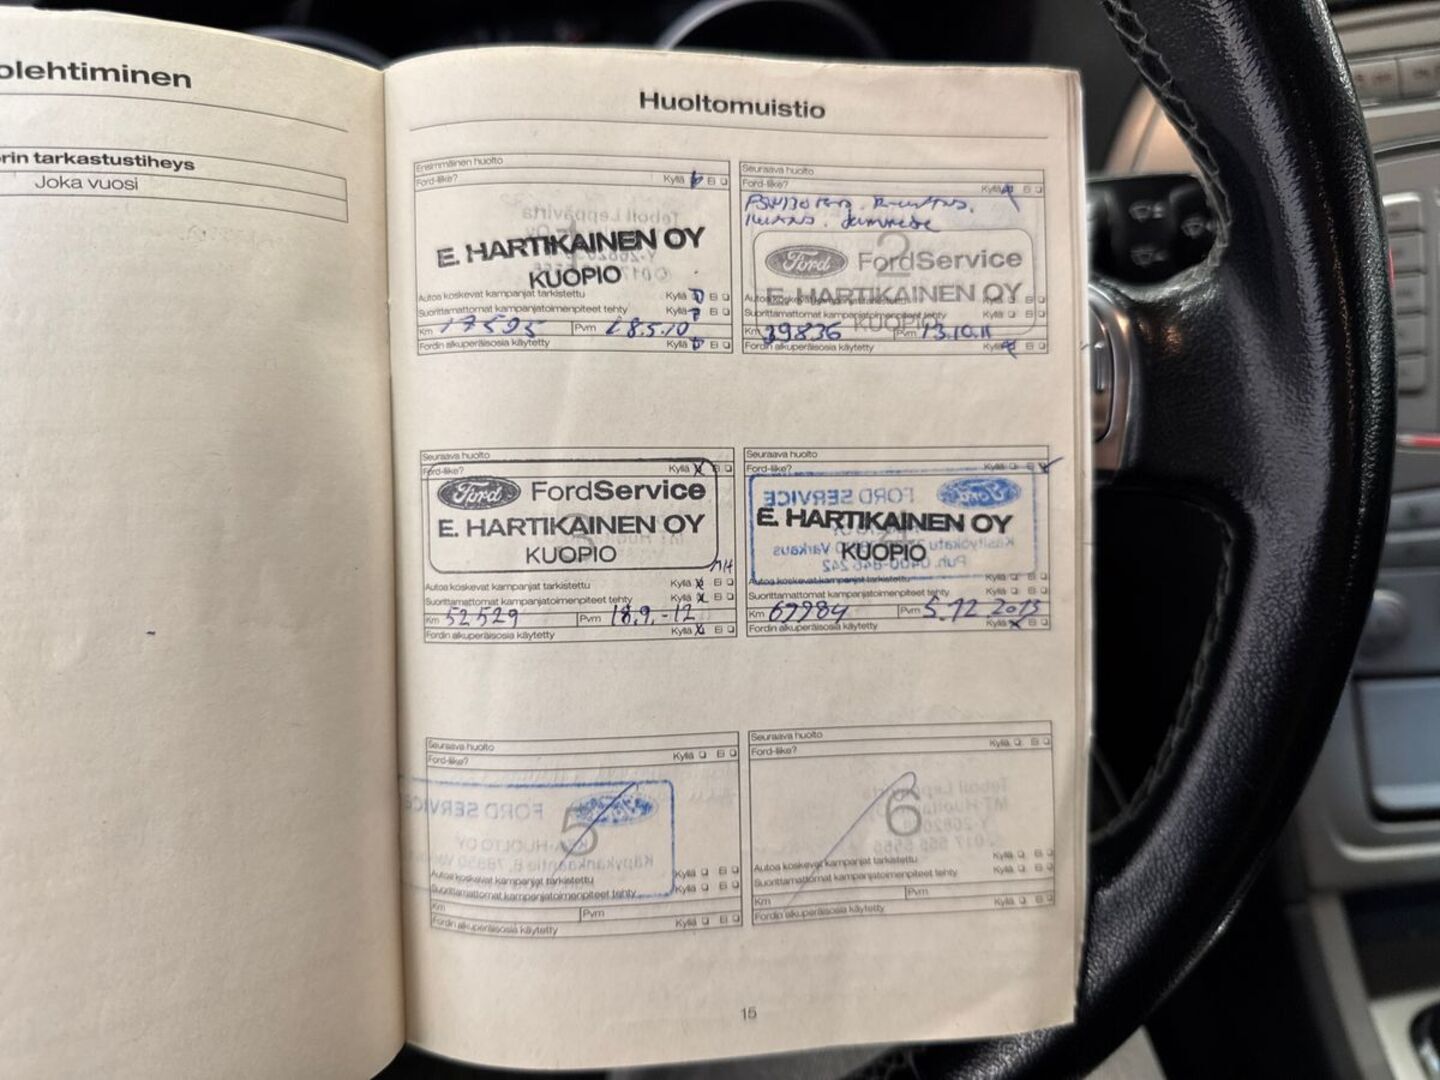 olehtiminen
rin tarkastustiheys
Joka vuosi
Huoltomuistio
Ensimmäinen huolto
Ford-liike? Kyllä Ei
E. HARTIKAINEN OY
KUOPIO
Autoa koskevat kampanjat tarkistettu Kyllä Ei
Suorittamattomat kampanjatoimenpiteet tehty Kyllä Ei
Km 17595 Pvm 18.5.10
Fordin alkuperäisosia käytetty Kyllä Ei
Seuraava huolto
Ford-liike? Kyllä Ei
2
Ford FordService
E. HARTIKAINEN OY
KUOPIO
Autoa koskevat kampanjat tarkistettu Kyllä Ei
Suorittamattomat kampanjatoimenpiteet tehty Kyllä Ei
Km 39836 Pvm 13.10.11
Fordin alkuperäisosia käytetty Kyllä Ei
Seuraava huolto
Ford-liike? Kyllä Ei
Ford FordService
E. HARTIKAINEN OY
3
KUOPIO
Autoa koskevat kampanjat tarkistettu Kyllä Ei
Suorittamattomat kampanjatoimenpiteet tehty Kyllä Ei
Km 52529 Pvm 18.9.-12
Fordin alkuperäisosia käytetty Kyllä Ei
Seuraava huolto
Ford-liike? Kyllä Ei
E. HARTIKAINEN OY
4
KUOPIO
Autoa koskevat kampanjat tarkistettu Kyllä Ei
Suorittamattomat kampanjatoimenpiteet tehty Kyllä Ei
Km 67984 Pvm 5.12.2013
Fordin alkuperäisosia käytetty Kyllä Ei
Seuraava huolto
Ford-liike? Kyllä Ei
5
Autoa koskevat kampanjat tarkistettu Kyllä Ei
Suorittamattomat kampanjatoimenpiteet tehty Kyllä Ei
Km Pvm
Fordin alkuperäisosia käytetty Kyllä Ei
Seuraava huolto
Ford-liike? Kyllä Ei
6
Autoa koskevat kampanjat tarkistettu Kyllä Ei
Suorittamattomat kampanjatoimenpiteet tehty Kyllä Ei
Km Pvm
Fordin alkuperäisosia käytetty Kyllä Ei
15